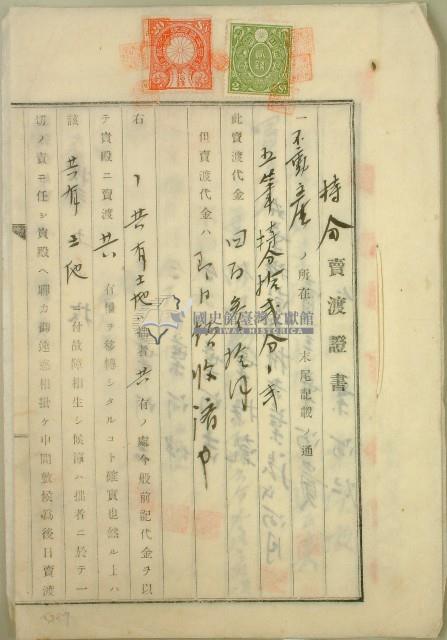 持分賣渡證書
一不動產ノ所在 末尾記載ノ通
五筆持分拾貳分ノ弐
此賣渡代金 四百参拾円
但賣渡代金ハ即日領收濟也
右ノ共有土地ハ拙者共有ノ處今般前記代金ヲ以
テ貴殿ニ賣渡共有權ヲ移轉シタルコト確實也然ル上ハ
該共有土地ニ付故障相生シ候節ハ拙者ニ於テ一
切ノ責ニ任シ貴殿ヘ聊カ御迷惑相掛ケ申間敷候為後日賣渡
國史館臺灣文獻館
TAIWAN HISTORICA